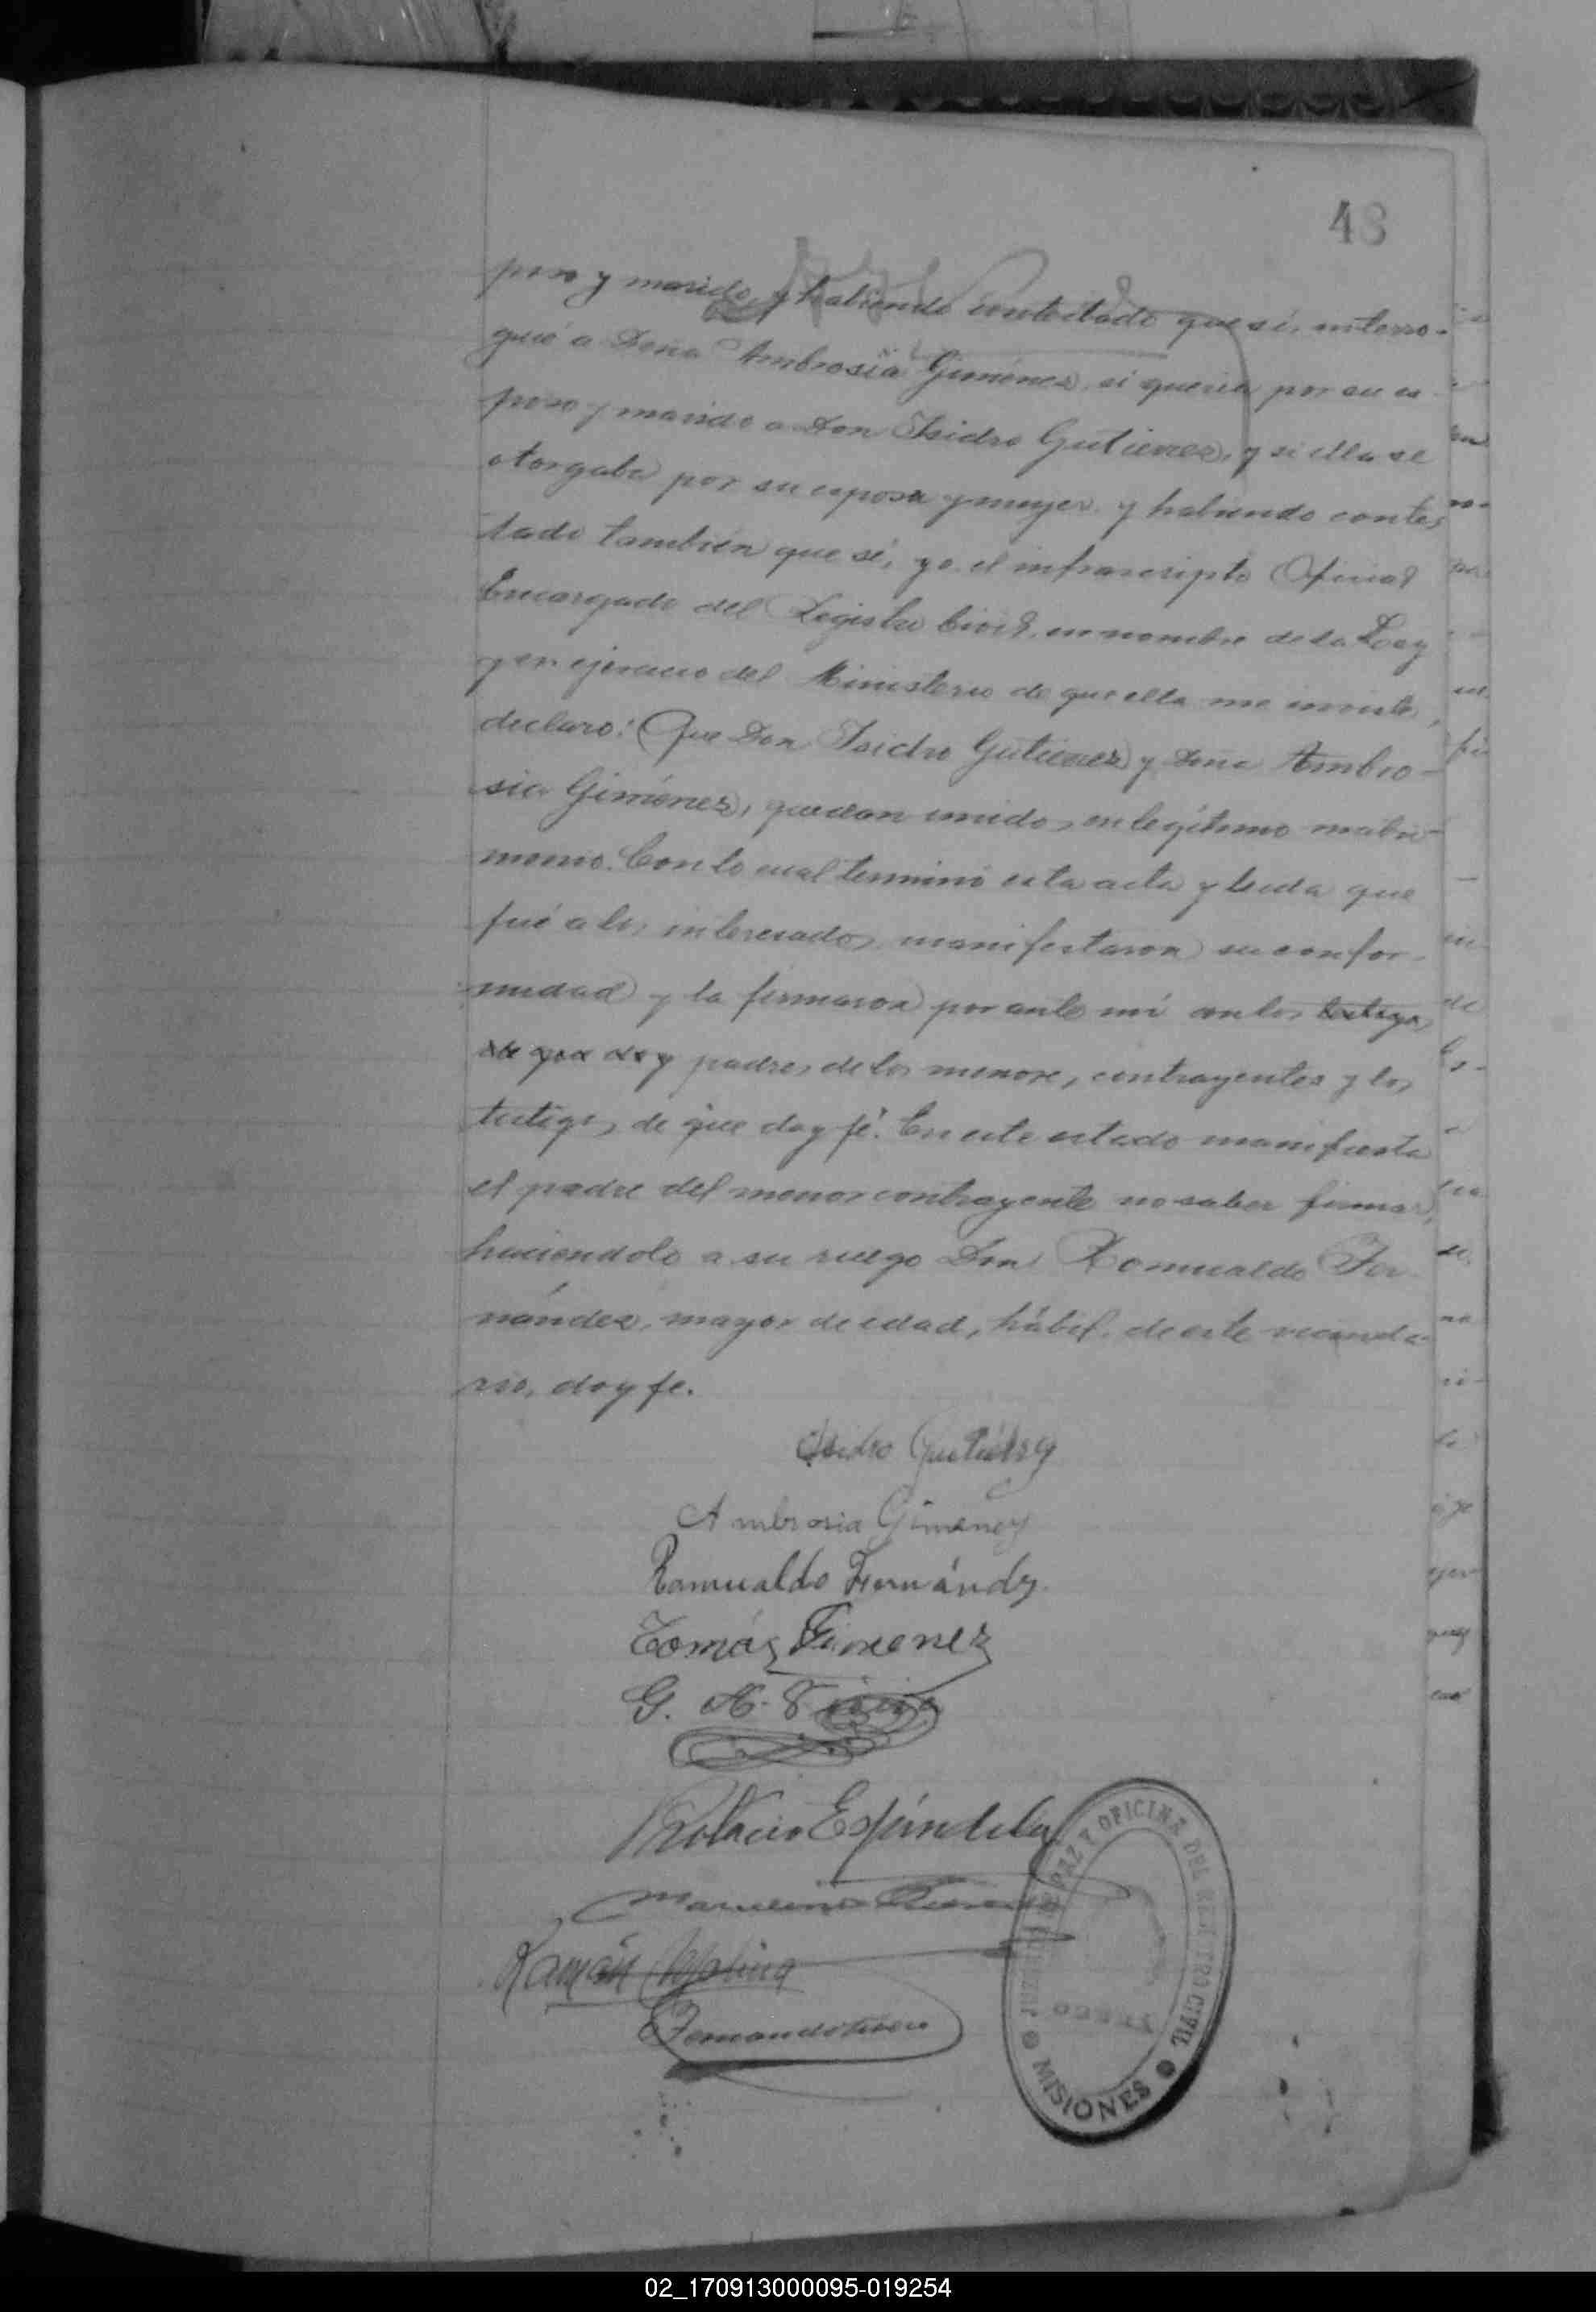 48
poso y marido, y habiendo contestado que sí, interro-
gué a Doña Ambrosia Giménez, si quería por su es
poso y marido a Don Isidro Gutierrez, y si ella se
otorgaba por su esposa y mujer, y habiendo contes
tado también que sí, yo el infrascripto Oficial
Encargado del Registro Civil, en nombre de la Ley
y en ejercicio del Ministerio de que ella me inviste,
declaro: Que Don Isidro Gutierrez y Doña Ambro-
sia Giménez, quedan unidos en legítimo matri-
monio. Con lo cual terminó esta acta y leida que
fué a los interesados, manifestaron su confor-
midad y la firmaron por ante mí con los testigos
de que doy padres de los menores contrayentes y los
testigos, de que doy fé. En este estado manifiesta
el padre del menor contrayente no saber firmar,
haciendolo a su ruego Don Romualdo Fer
nández, mayor de edad, hábil, de este vecinda-
rio, doy fe.
Isidro Gutiérrez
Ambrosia Gimenez
Romualdo Fernández
Tomás Gimenez
G. N.
Espíndola
Ramón Molina
Fernando
JUZGADO DE PAZ Y OFICINA DEL REGISTRO CIVIL
MISIONES
02_170913000095-019254